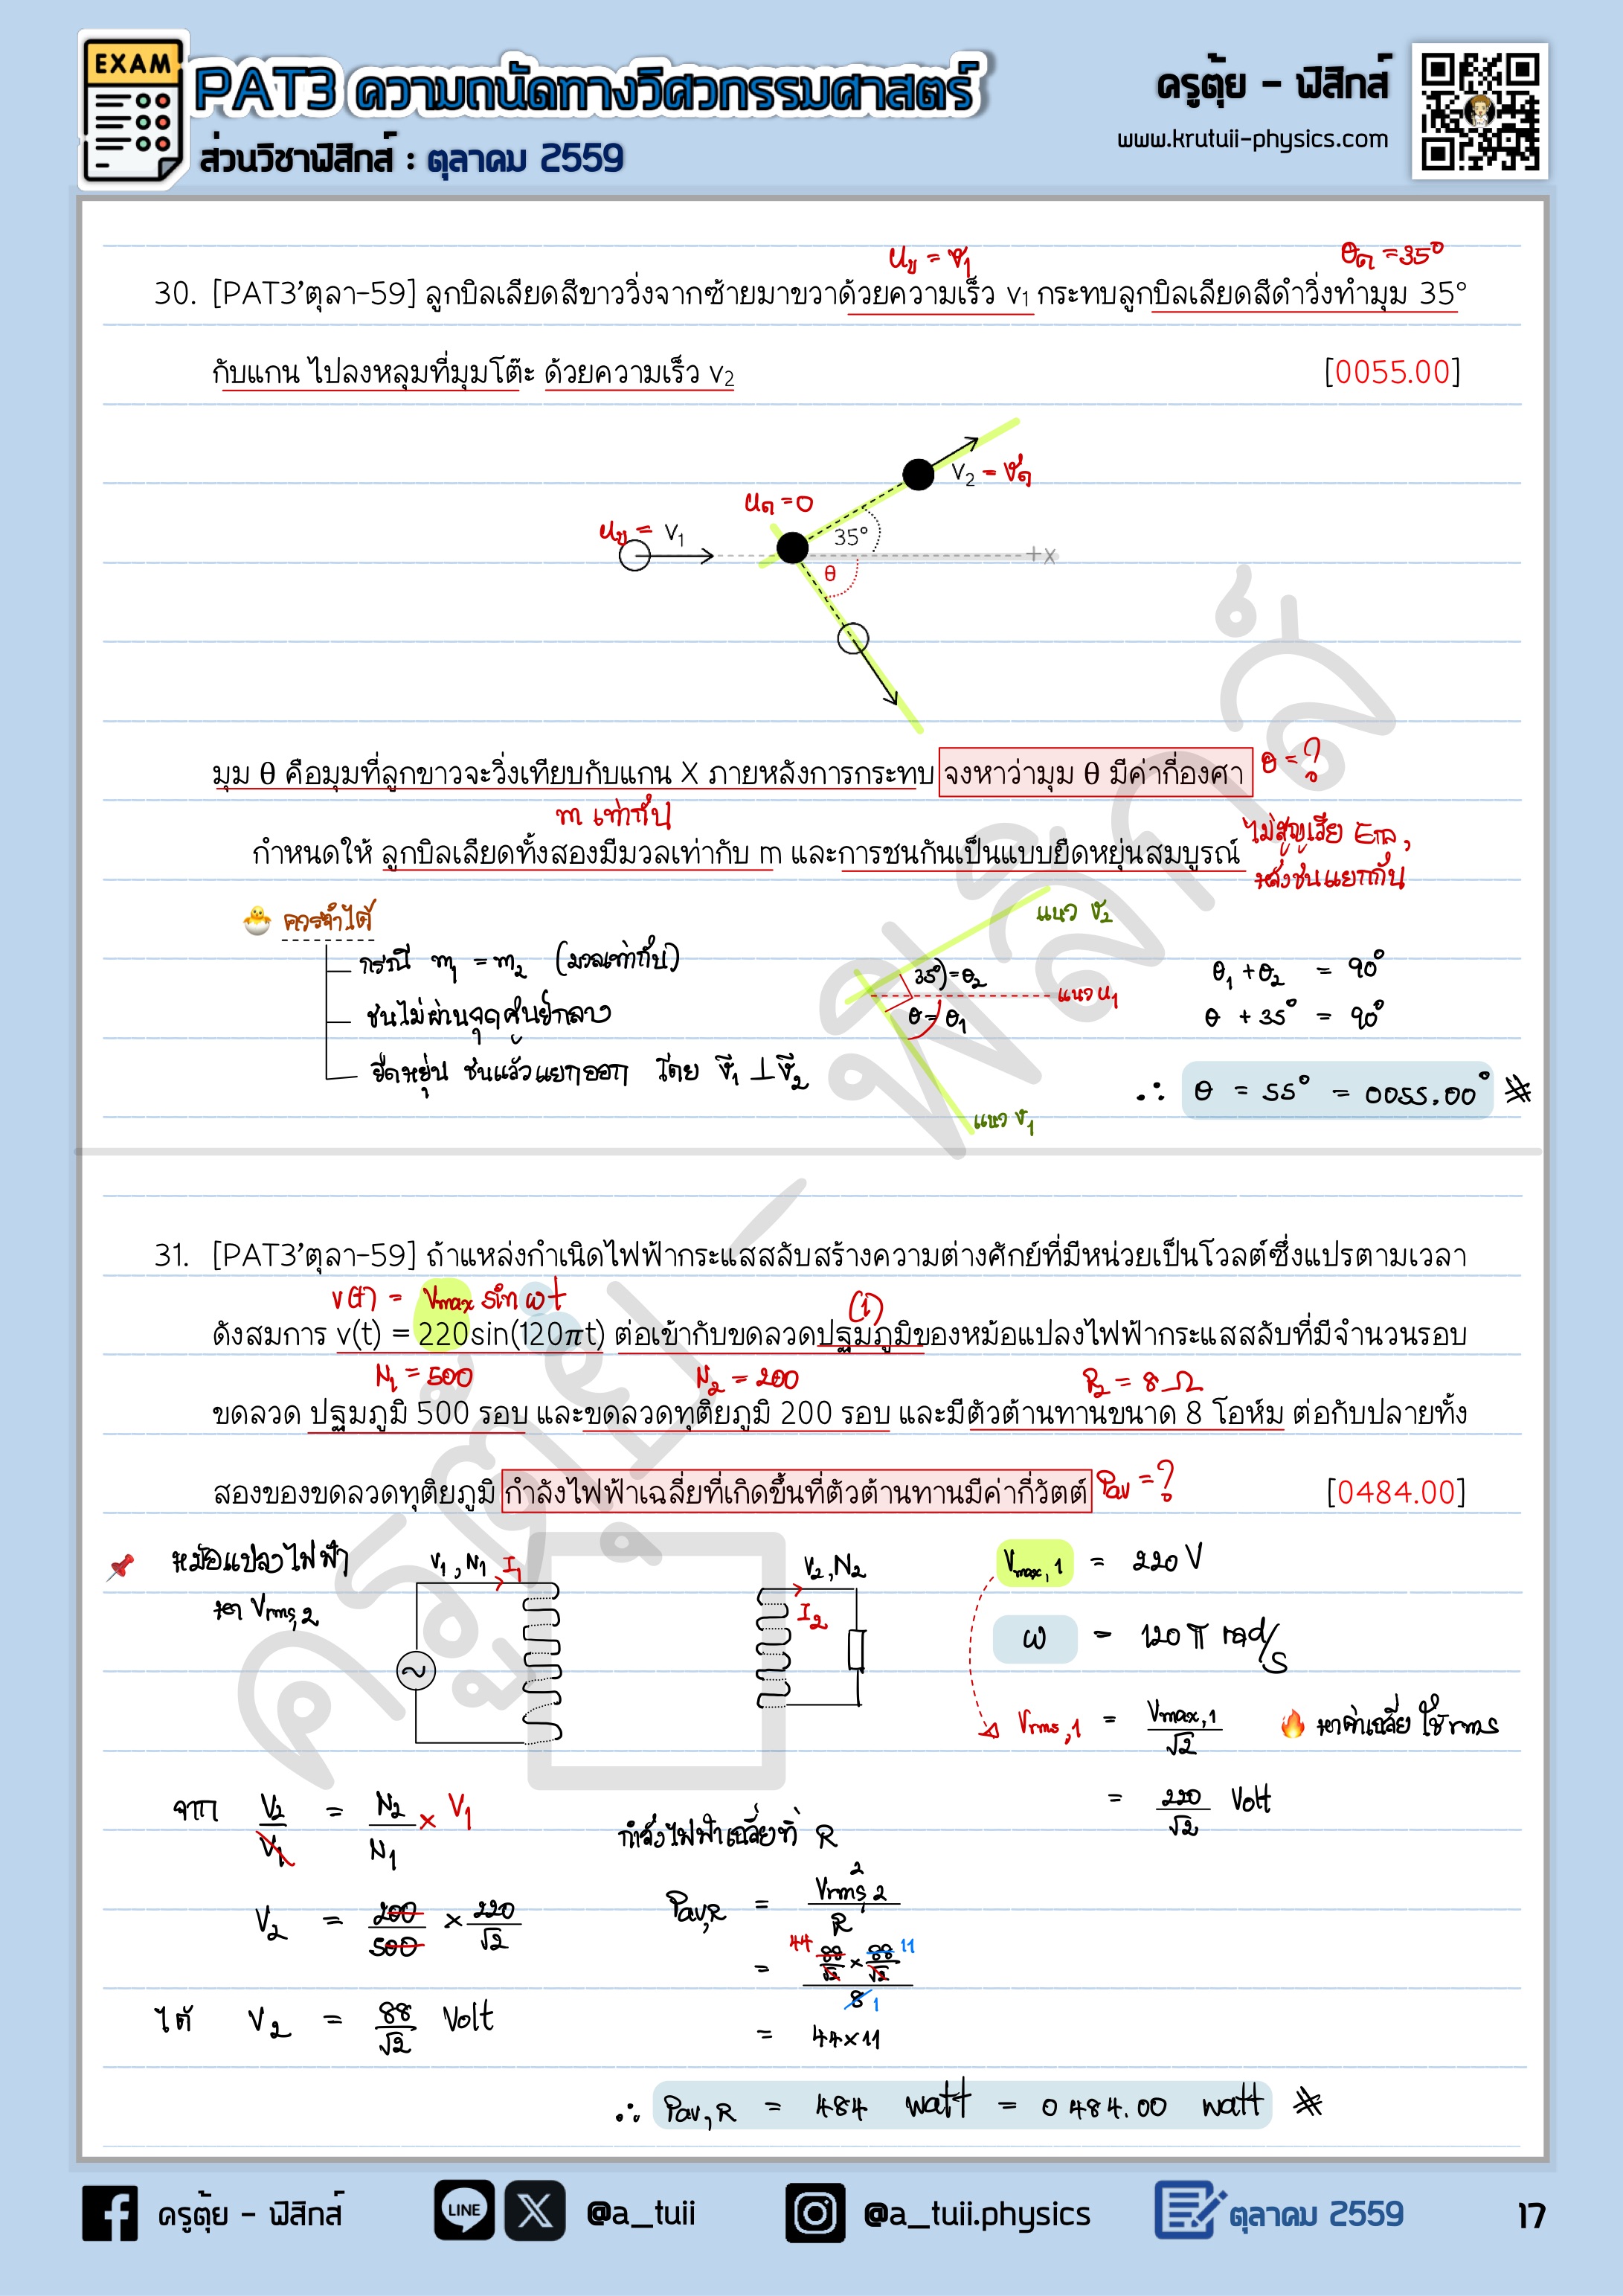 EXAM
PAT3 ความถนัดทางวิศวกรรมศาสตร์
ส่วนวิชาฟิสิกส์ : ตุลาคม 2559
ครูตุ้ย - ฟิสิกส์
www.krutuii-physics.com
u_ข = v₁
θ_ด = 35°
30. [PAT3'ตุลา-59] ลูกบิลเลียดสีขาววิ่งจากซ้ายมาขวาด้วยความเร็ว v₁ กระทบลูกบิลเลียดสีดำวิ่งทำมุม 35°
กับแกน ไปลงหลุมที่มุมโต๊ะ ด้วยความเร็ว v₂ [0055.00]
v₂ = v'_ด
u_ด = 0
u_ข = v₁
35°
+x
θ
มุม θ คือมุมที่ลูกขาวจะวิ่งเทียบกับแกน X ภายหลังการกระทบ จงหาว่ามุม θ มีค่ากี่องศา θ = ?
m เท่ากัน
กำหนดให้ ลูกบิลเลียดทั้งสองมีมวลเท่ากับ m และการชนกันเป็นแบบยืดหยุ่นสมบูรณ์
ไม่สูญเสีย Eกล,
หลังชนแยกกัน
ควรจำได้
กรณี m₁ = m₂ (มวลเท่ากัน)
ชนไม่ผ่านจุดศูนย์กลาง
ยืดหยุ่น ชนแล้วแยกออก โดย v₁ ⊥ v₂
แนว v₂
35° = θ₂
แนว u₁
θ = θ₁
แนว v₁
θ₁ + θ₂ = 90°
θ + 35° = 90°
∴ θ = 55° = 0055.00° #
31. [PAT3'ตุลา-59] ถ้าแหล่งกำเนิดไฟฟ้ากระแสสลับสร้างความต่างศักย์ที่มีหน่วยเป็นโวลต์ซึ่งแปรตามเวลา
v(t) = Vmax sin ωt
(1)
ดังสมการ v(t) = 220sin(120πt) ต่อเข้ากับขดลวดปฐมภูมิของหม้อแปลงไฟฟ้ากระแสสลับที่มีจำนวนรอบ
N₁ = 500
N₂ = 200
R₂ = 8 Ω
ขดลวด ปฐมภูมิ 500 รอบ และขดลวดทุติยภูมิ 200 รอบ และมีตัวต้านทานขนาด 8 โอห์ม ต่อกับปลายทั้ง
สองของขดลวดทุติยภูมิ กำลังไฟฟ้าเฉลี่ยที่เกิดขึ้นที่ตัวต้านทานมีค่ากี่วัตต์ Pav = ? [0484.00]
หม้อแปลงไฟฟ้า
หา Vrms,2
V₁, N₁ I₁
V₂, N₂
I₂
Vmax,1 = 220 V
ω = 120π rad/s
Vrms,1 = Vmax,1/√2
หาค่าเฉลี่ย ใช้ rms
= 220/√2 Volt
จาก V₂/V₁ = N₂/N₁ × V₁
V₂ = 200/500 × 220/√2
ได้ V₂ = 88/√2 Volt
กำลังไฟฟ้าเฉลี่ยที่ R
Pav,R = Vrms,2²/R
= 44 88/√2 × 88/√2 11
8 1
= 44×11
∴ Pav,R = 484 watt = 0484.00 watt #
ครูตุ้ย - ฟิสิกส์
LINE
@a_tuii
@a_tuii.physics
ตุลาคม 2559
17
ครูตุ้ย - ฟิสิกส์